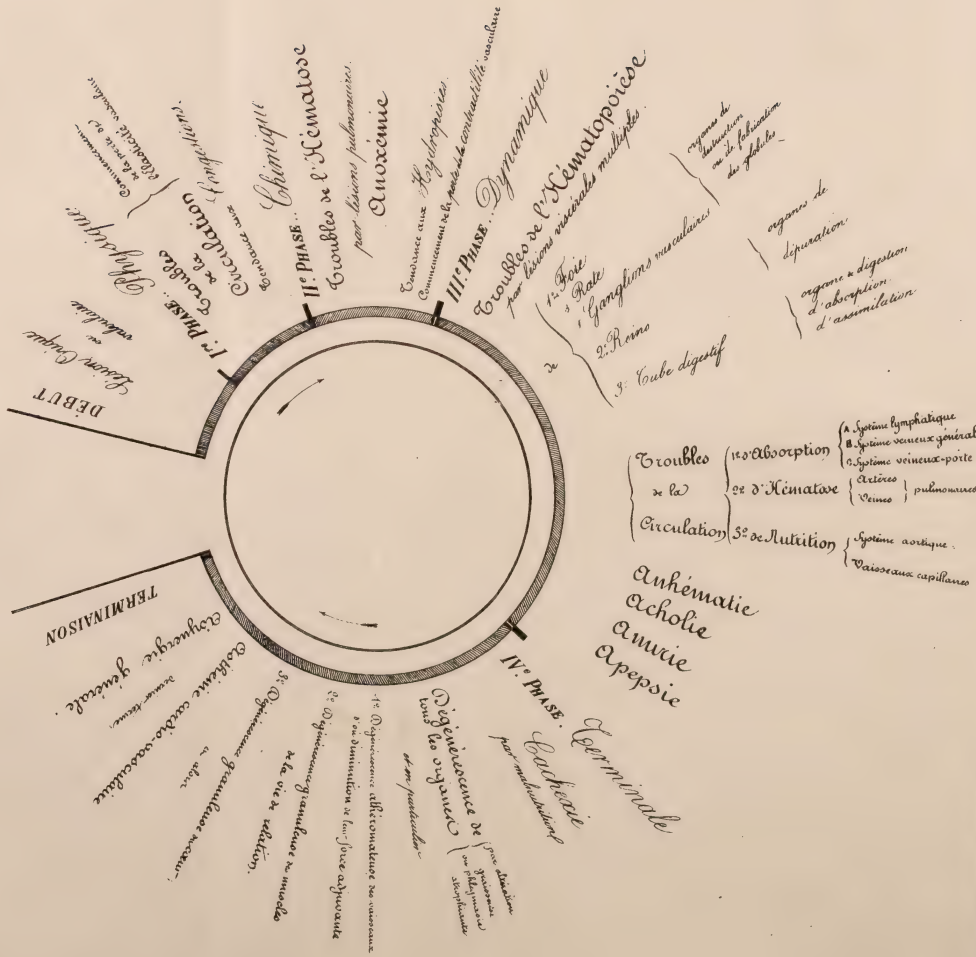 DÉBUT
Lésion Unique
ou
valvulaire
Ire PHASE.. Physique.
Troubles
de la
Circulation
Commencement
de la perte de
l'élasticité vasculaire
Tendance aux Congestions.
IIe PHASE.. Chimique
Troubles de l'Hématose
par lésions pulmonaires.
Anoxémie
Tendance aux Hydropisies.
Commencement de la perte de la contractilité vasculaire
IIIe PHASE.. Dynamique
Troubles de l'Hématopoièse.
par lésions viscérales multiples
de
1º Foie
" Rate
" Ganglions vasculaires
organes de
destruction
ou de fabrication
des globules
2º Reins
organes de
dépuration
3º Tube digestif
organe de digestion
d'absorption
d'assimilation
Troubles
de la
Circulation
1º d'Absorption
A Système lymphatique
B. Système veineux général
C. Système veineux-porte
2º d'Hématose
Artères
Veines
pulmonaires
3º de Nutrition
Système aortique.
Vaisseaux capillaires
Anhématie
Acholie
Anurie
Apepsie
IVe PHASE. Terminale
Cachexie
par malnutrition
Dégénérescence de
tous les organes
par stéatation
graisseuse
ou phlegmasie
atrophiante
et en particulier
1º Dégénérescence athéromateuse des vaisseaux
d'où diminution de leur force adjuvante
2º Dégénérescence granuleuse de muscles
de la vie de relation.
3º Dégénérescence granuleuse du cœur.
et alors
Asthénie cardio-vasculaire
dernier terme.
Asynergie générale.
TERMINAISON